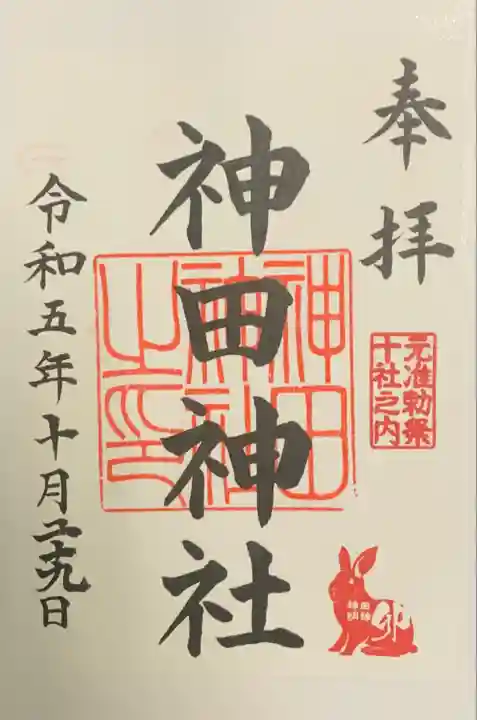 奉拝
元准勅祭
十社之内
卯
神田神社
神田
神社
之印
令和五年十月二十九日